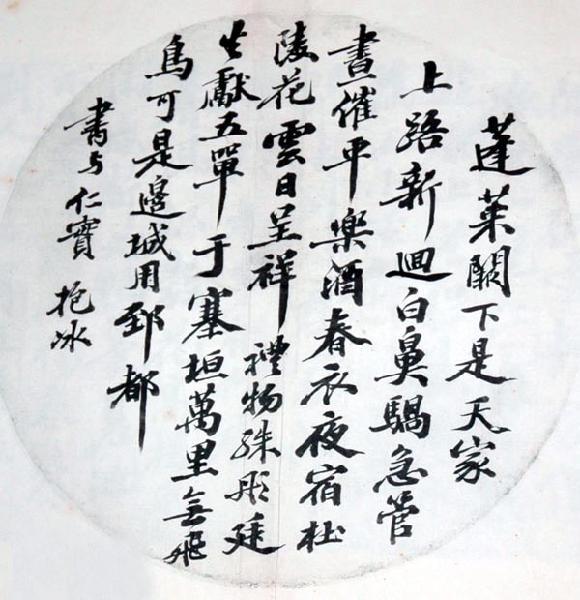 蓬萊闕下是天家
上路新迴白鼻騧急管
晝催平樂酒春衣夜宿杜
陵花雲日呈祥禮物殊彤廷
生獻五單于塞垣萬里無飛
鳥可是邊城用郅都
書与仁實 抱冰